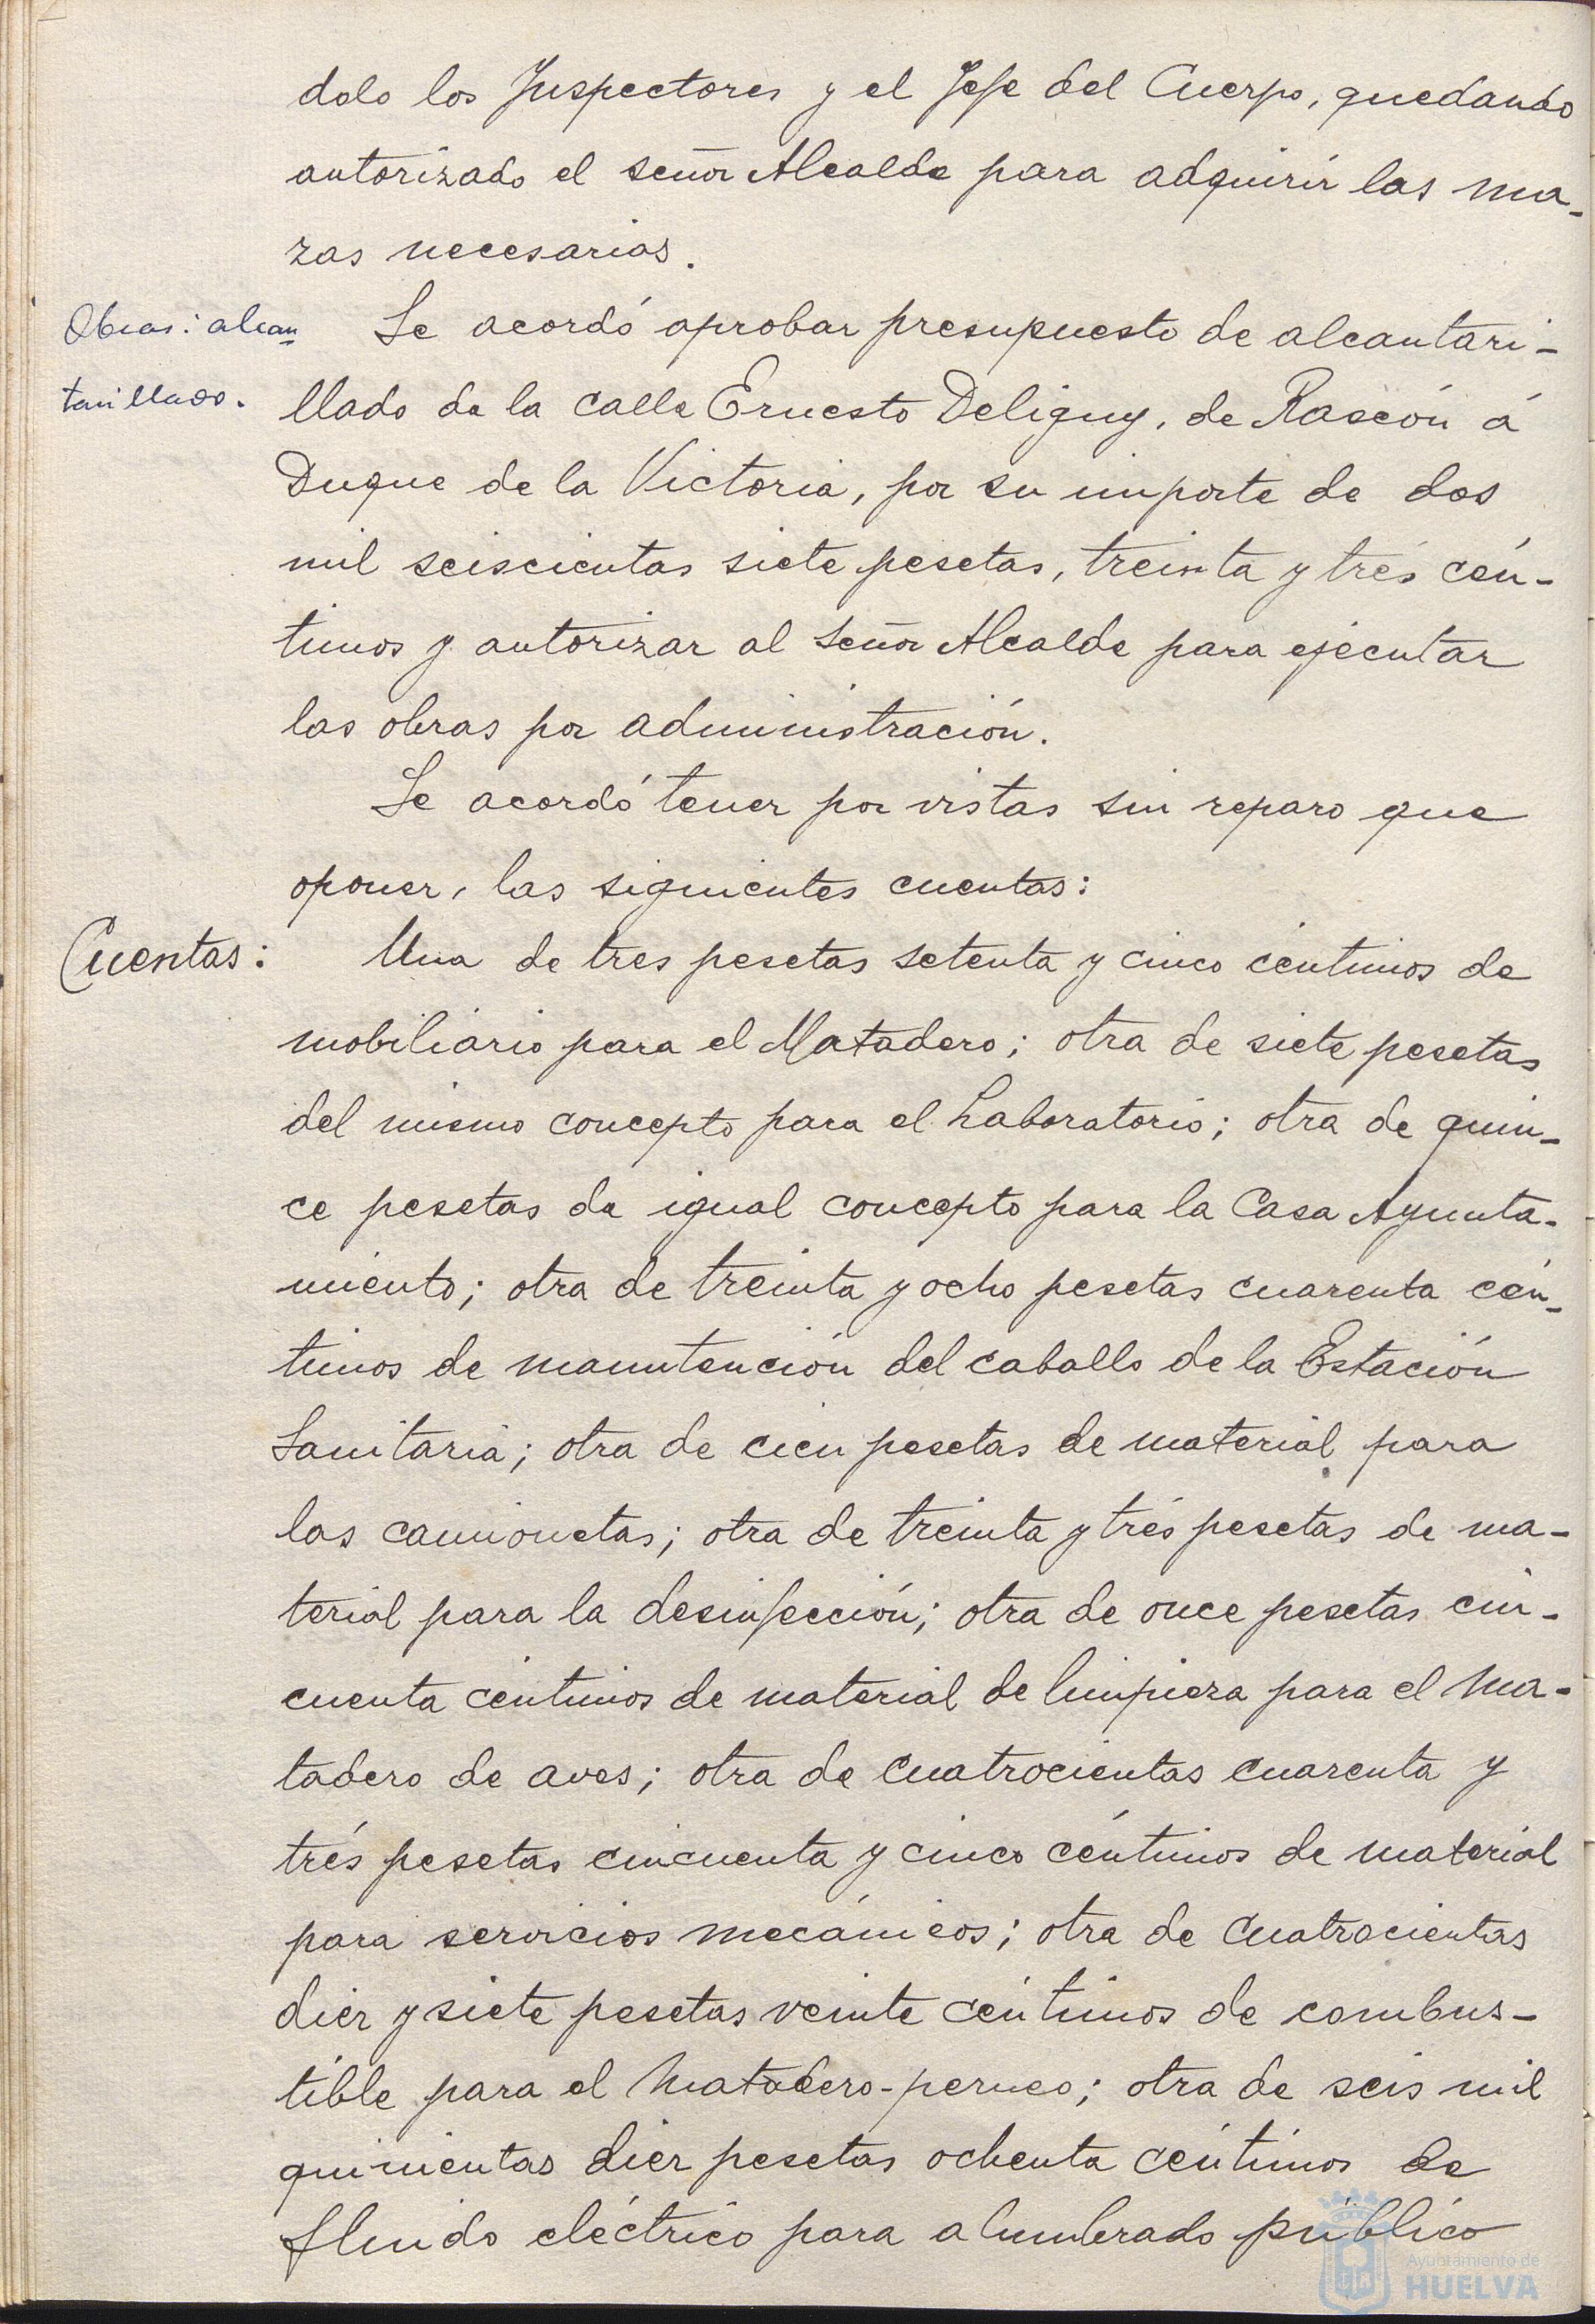 dolo los Inspectores y el Jefe del Cuerpo, quedando
autorizado el señor Alcalde para adquirir las ma-
zas necesarias.
Obras: alcan
tarillado.
Se acordó aprobar presupuesto de alcantari-
llado de la calle Ernesto Deligny, de Rascón á
Duque de la Victoria, por su importe de dos
mil seiscientas siete pesetas, treinta y trés cén-
timos y autorizar al señor Alcalde para ejecutar
las obras por administración.
Se acordó tener por vistas sin reparo que
oponer, las siguientes cuentas:
Cuentas:
Una de tres pesetas setenta y cinco céntimos de
mobiliario para el Matadero; otra de siete pesetas
del mismo concepto para el Laboratorio; otra de quin-
ce pesetas de igual concepto para la Casa Ayunta-
miento; otra de treinta y ocho pesetas cuarenta cén-
timos de manutención del caballo de la Estación
Sanitaria; otra de cien pesetas de material para
las camionetas; otra de treinta y trés pesetas de ma-
terial para la desinfección; otra de once pesetas cin-
cuenta céntimos de material de limpieza para el Ma-
tadero de aves; otra de cuatrocientas cuarenta y
trés pesetas cincuenta y cinco céntimos de material
para servicios mecánicos; otra de cuatrocientas
diez y siete pesetas veinte céntimos de combus-
tible para el Matadero-; otra de seis mil
quinientas diez pesetas ochenta céntimos de
fluido eléctrico para alumbrado público
Ayuntamiento de
HUELVA